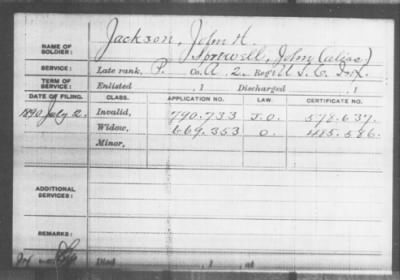 NAME OF SOLDIER: Jackson, John H.
Spotwell, John (alias)
SERVICE: Late rank, P. Co. A. 2. Reg't U.S.C. Inf.
TERM OF SERVICE: Enlisted , 1 Discharged , 1
DATE OF FILING. CLASS. APPLICATION NO. LAW. CERTIFICATE NO.
1890 July 2. Invalid, 790.733 J.O. 578.637.
Widow, 669.353 O. 485.586.
Minor,
ADDITIONAL SERVICES:
REMARKS:
Died , 1 , at